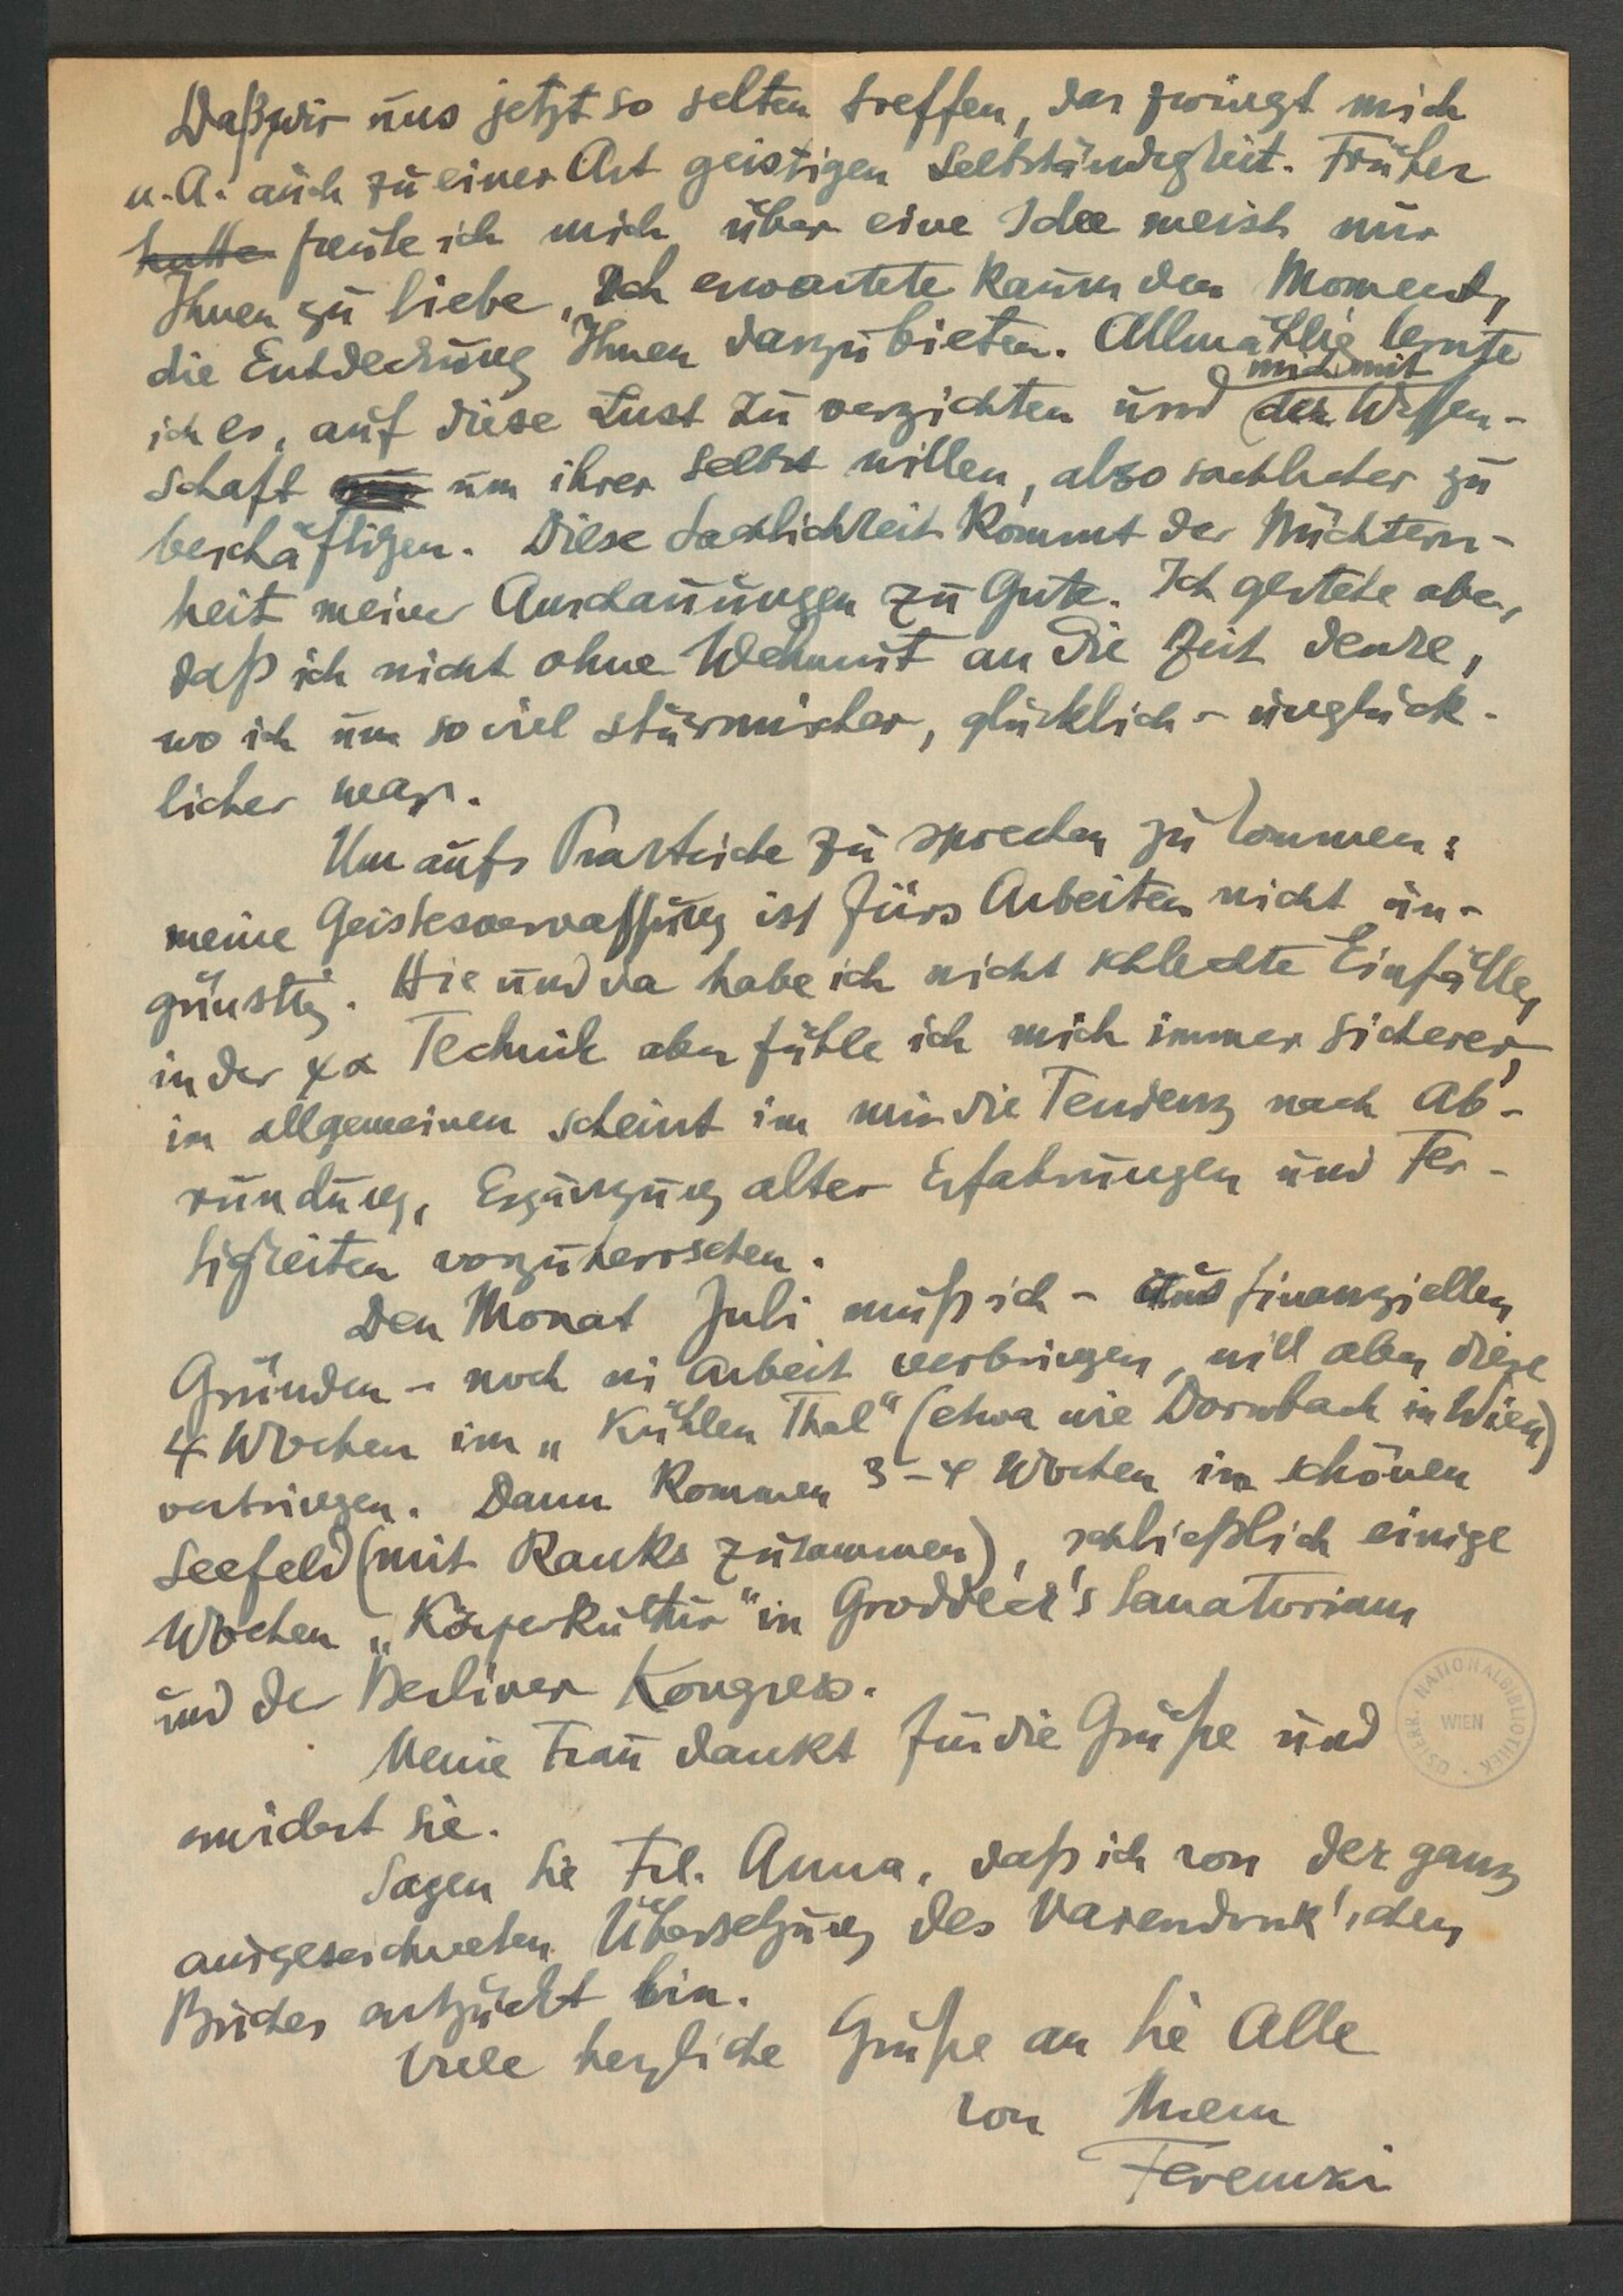 Daß wir uns jetzt so selten treffen, das zwingt mich
u. A. auch zu einer Art geistigen Selbständigkeit. Früher
hatte freute ich mich über eine Idee meist nur
Ihnen zu liebe, Ich erwartete kaum den Moment,
die Entdeckung Ihnen darzubieten. Allmählig lernte
ich es, auf diese Lust zu verzichten und mich mit der Wissen-
schaft um ihrer selbst willen, also sachlicher zu
beschäftigen. Diese Sachlichkeit kommt der Nüchtern-
heit meiner Anschauungen zu Gute. Ich gestehe aber,
daß ich nicht ohne Wehmut an die Zeit denke,
wo ich um so viel stürmischer, glücklich-unglück-
licher war.
Um aufs Praktische zu sprechen zu kommen:
meine Geistesvervassung ist fürs Arbeiten nicht un-
günstig. Hie und da habe ich nicht schlechte Einfälle,
in der ψα Technik aber fühle ich mich immer sicherer,
im allgemeinen scheint in mir die Tendenz nach Ab-
rundung, Ergänzung alter Erfahrungen und Fer-
tigkeiten vorzuherrschen.
Den Monat Juli muß ich - aus finanziellen
Gründen - noch in Arbeit verbringen, will aber diese
4 Wochen im „Kühlen Thal" (etwa wie Dornbach in Wien)
verbringen. Dann kommen 3-4 Wochen im schönen
Seefeld (mit Ranks zusammen), schließlich einige
Wochen „Körperkultur" in Groddeck's Sanatorium
und der Berliner Kongress.
Meine Frau dankt für die Grüße und
erwidert sie.
Sagen Sie Frl. Anna, daß ich von der ganz
ausgezeichneten Übersetzung des Varendonk'schen
Buches entzückt bin.
Viele herzliche Grüße an Sie Alle
von Ihrem
Ferenczi
ÖSTERR. NATIONALBIBLIOTHEK
WIEN